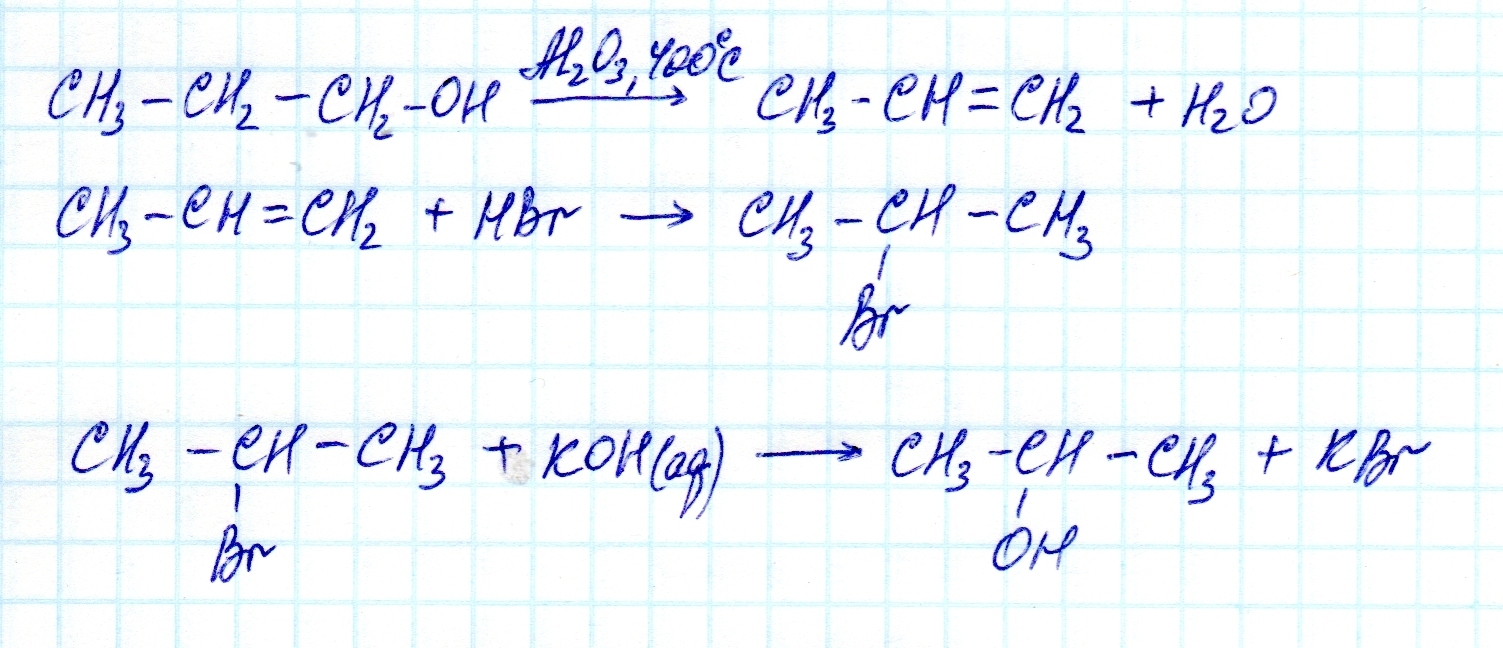 CH₃–CH₂–CH₂–OH Al₂O₃, 400°C → CH₃–CH=CH₂ + H₂O
CH₃–CH=CH₂ + HBr → CH₃–CH–CH₃
Br
CH₃–CH–CH₃ + KOH(aq) → CH₃–CH–CH₃ + KBr
Br OH